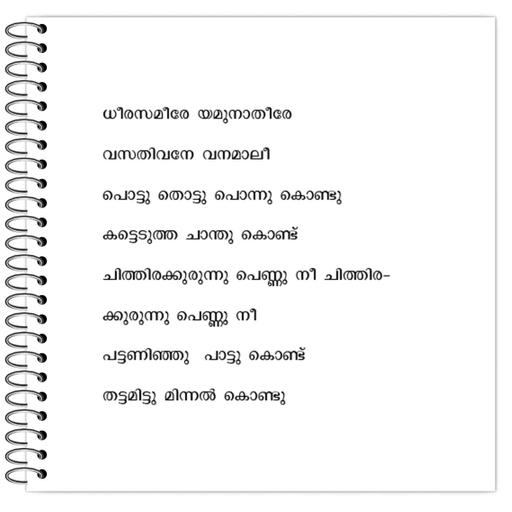 ധീരസമീരേ യമുനാതീരേ
വസതിവനേ വനമാലീ
പൊട്ടു തൊട്ടു പൊന്നു കൊണ്ടു
കട്ടെടുത്ത ചാന്തു കൊണ്ട്
ചിത്തിരക്കുരുന്നു പെണ്ണു നീ ചിത്തിര-
ക്കുരുന്നു പെണ്ണു നീ
പട്ടണിഞ്ഞു പാട്ടു കൊണ്ട്
തട്ടമിട്ടു മിന്നൽ കൊണ്ടു